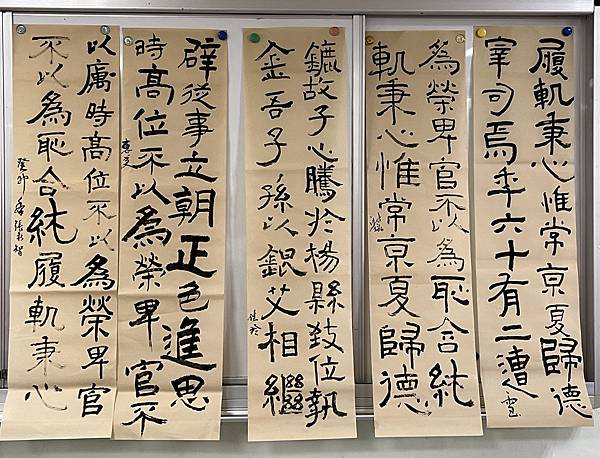 履軌秉心惟常京夏歸德
宰司焉年六十有二遭
為榮卑官不以為恥含純
軌秉心惟常京夏歸德
鏕故子心騰於楊縣致位執
金吾子孫以銀艾相繼
佳玲
辟從事立朝正色進思
時高位不以為榮卑官不
以厲時高位不以為榮卑官
不以為恥含純履軌秉心
癸卯